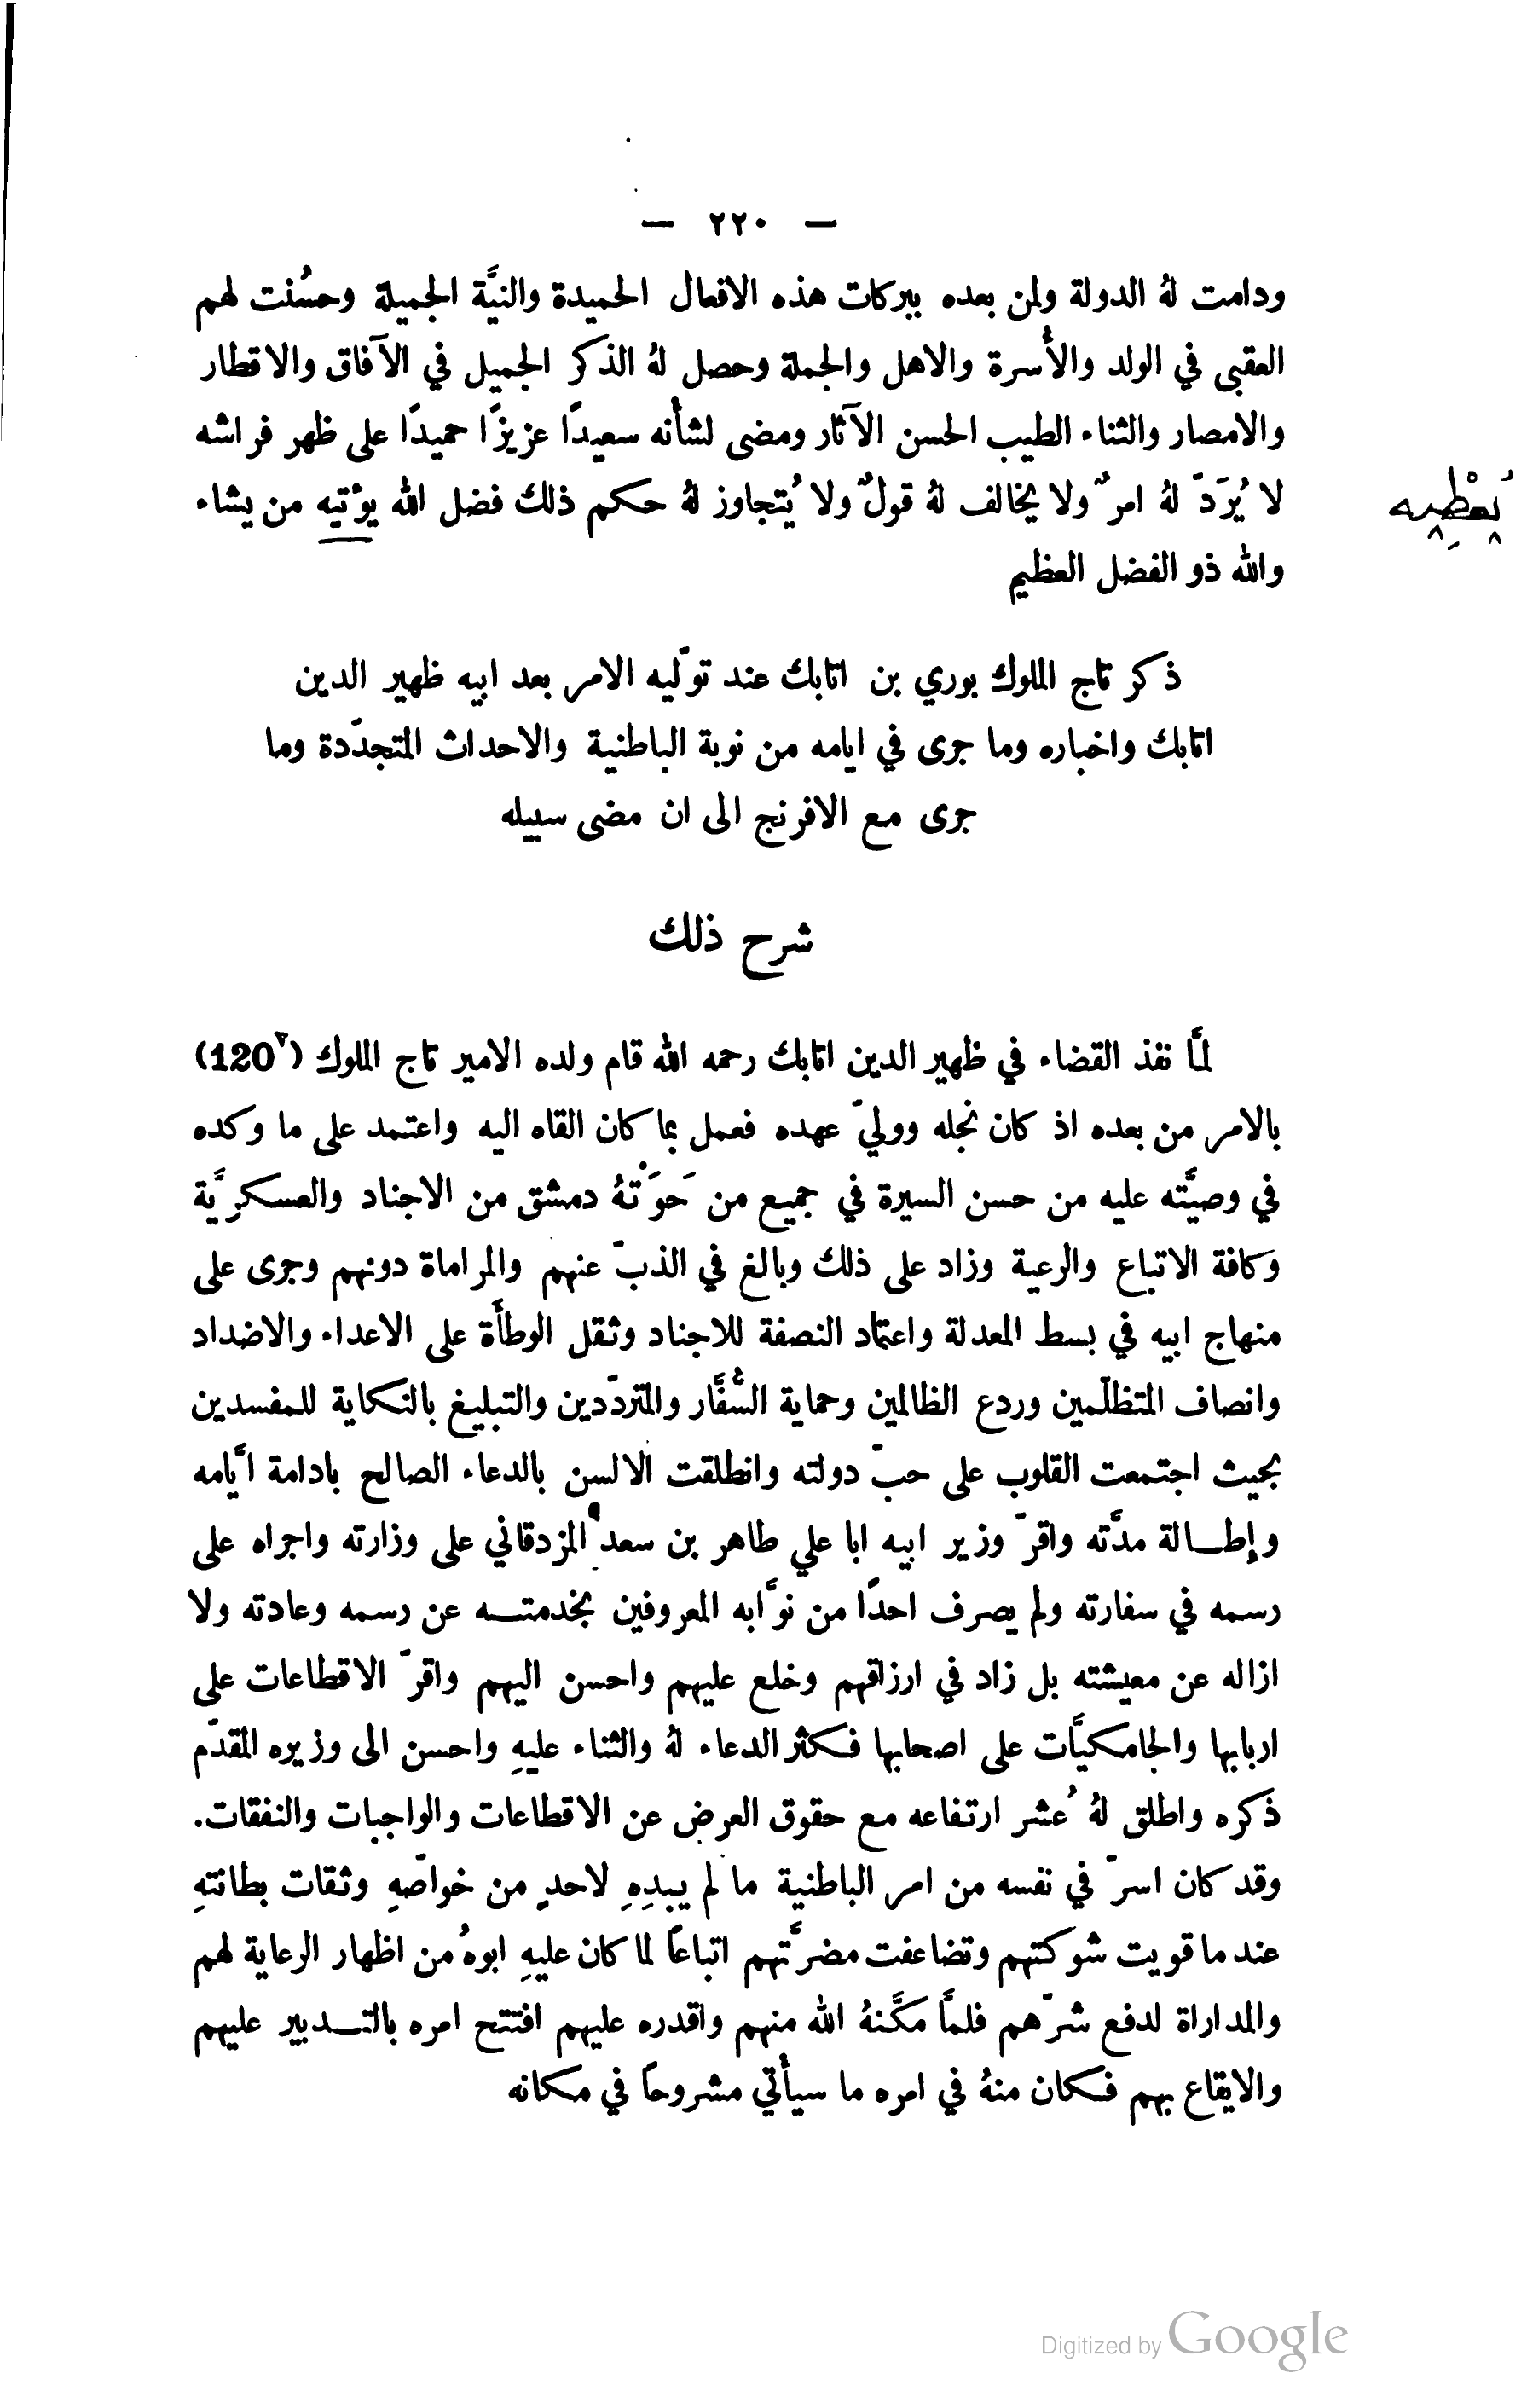 — ٢٢٠ —
ودامت لهُ الدولة ولمن بعده ببركات هذه الافعال الحميدة والنيَّة الجميلة وحسُنت لهم
العقبى في الولد والأُسرة والاهل والجملة وحصل لهُ الذكر الجميل في الآفاق والاقطار
والامصار والثناء الطيب الحسن الآثار ومضى لشأنه سعيدًا عزيزًا حميدًا على ظهر فراشه
لا يُرَدّ لهُ امرٌ ولا يخالف لهُ قولٌ ولا يُتجاوز لهُ حكم ذلك فضل الله يؤتيه من يشاء
يُعْطِيه
والله ذو الفضل العظيم
ذكر تاج الملوك بوري بن اتابك عند تولّيه الامر بعد ابيه ظهير الدين
اتابك واخباره وما جرى في ايامه من نوبة الباطنية والاحداث المتجدّدة وما
جرى مع الافرنج الى ان مضى سبيله
شرح ذلك
لمَّا نفذ القضاء في ظهير الدين اتابك رحمه الله قام ولده الامير تاج الملوك (120ᵛ)
بالامر من بعده اذ كان نجله ووليّ عهده فعمل بما كان القاه اليه واعتمد على ما وكده
في وصيَّته عليه من حسن السيرة في جميع من حَوَتْهُ دمشق من الاجناد والعسكريَّة
وكافة الاتباع والرعية وزاد على ذلك وبالغ في الذبّ عنهم والمراماة دونهم وجرى على
منهاج ابيه في بسط المعدلة واعتماد النصفة للاجناد وثقل الوطأَة على الاعداء والاضداد
وانصاف المتظلّمين وردع الظالمين وحماية السُّفَّار والمتردّدين والتبليغ بالنكاية للمفسدين
بحيث اجتمعت القلوب على حبّ دولته وانطلقت الالسن بالدعاء الصالح بادامة ايَّامه
وإطــالة مدَّته واقرّ وزير ابيه ابا علي طاهر بن سعد المزدقاني على وزارته واجراه على
رسمه في سفارته ولم يصرف احدًا من نوَّابه المعروفين بخدمتــه عن رسمه وعادته ولا
ازاله عن معيشته بل زاد في ارزاقهم وخلع عليهم واحسن اليهم واقرّ الاقطاعات على
اربابها والجامكيَّات على اصحابها فكثر الدعاء لهُ والثناء عليهِ واحسن الى وزيره المقدّم
ذكره واطلق لهُ عُشر ارتفاعه مع حقوق العرض عن الاقطاعات والواجبات والنفقات.
وقد كان اسرّ في نفسه من امر الباطنية ما لم يبدِهِ لاحدٍ من خواصّهِ وثقات بطانتهِ
عند ما قويت شوكتهم وتضاعفت مضرَّتهم اتباعًا لما كان عليهِ ابوهُ من اظهار الرعاية لهم
والمداراة لدفع شرّهم فلمَّا مكَّنهُ الله منهم واقدره عليهم افتتح امره بالتــدبير عليهم
والايقاع بهم فكان منهُ في امره ما سيأتي مشروحًا في مكانه
Digitized by Google